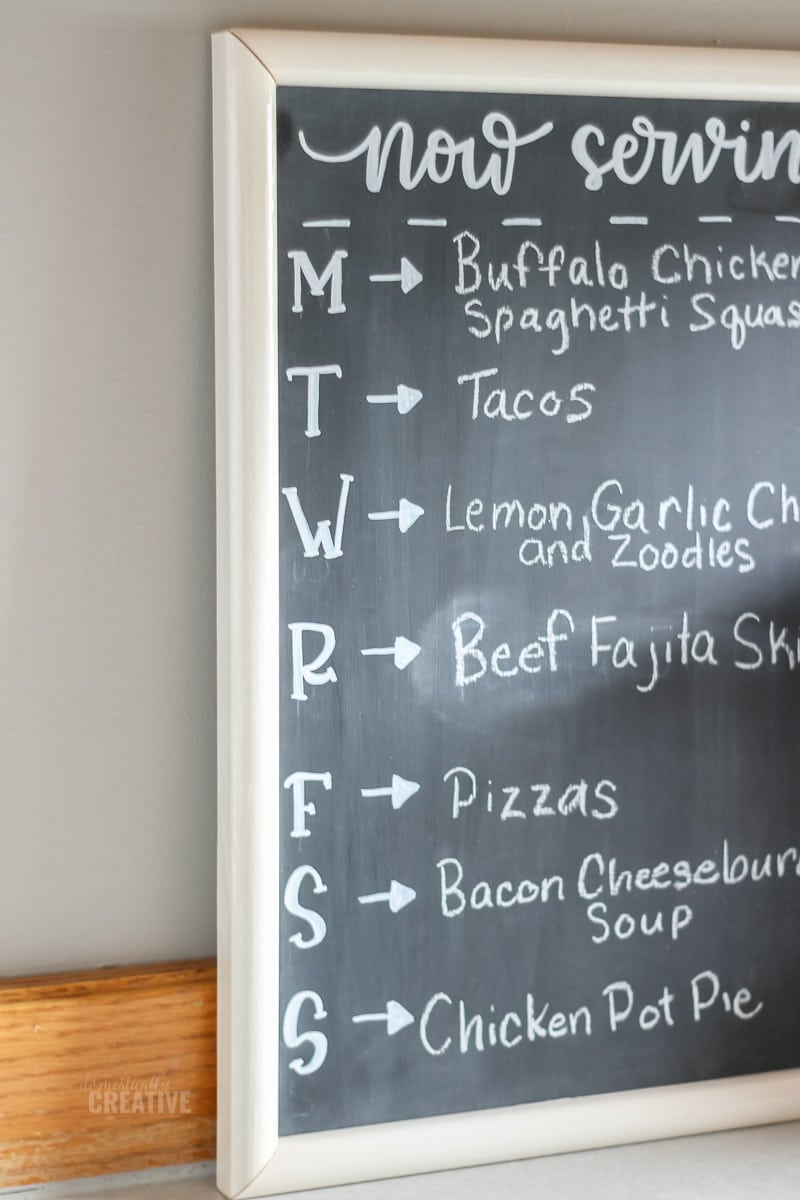 now servin
M → Buffalo Chicken
Spaghetti Squas
T → Tacos
W → Lemon Garlic Ch
and Zoodles
R → Beef Fajita Sk
F → Pizzas
S → Bacon Cheesebur
Soup
S → Chicken Pot Pie
domestically
CREATIVE